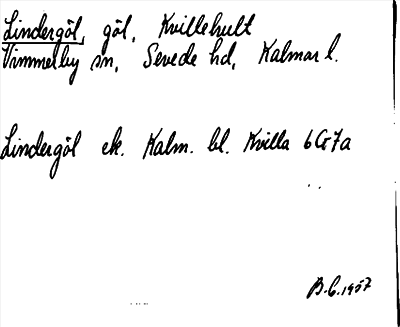 Lindergöl, göl, Kvillehult
Vimmerby sn, Sevede hd, Kalmar l.
Lindergöl ek. Kalm. bl. Kvilla 6G7a
B.C. 1957